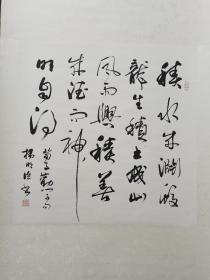 積水成淵蛟
龍生積土成山
風雨興積善
成德而神
明自得
荀子勸學句